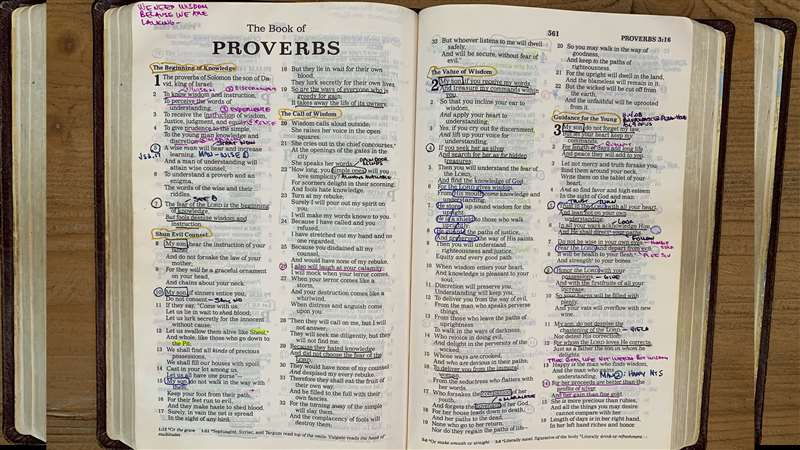 WE NEED WISDOM
BECAUSE WE ARE
LACKING -
The Book of
PROVERBS
The Beginning of Knowledge
1 The proverbs of Solomon the son of Da-
vid, king of Israel:
2 To know wisdom and instruction,
To perceive the words of
understanding,
EXPERIENCE
3 To receive the instruction of wisdom,
Justice, judgment, and equity;
4 To give prudence to the simple,
To the young man knowledge and
discretion—
5 A wise man will hear and increase
learning,
And a man of understanding will
attain wise counsel,
6 To understand a proverb and an
enigma,
The words of the wise and their
riddles.
7 The fear of the LORD is the beginning
of knowledge,
But fools despise wisdom and
instruction.
Shun Evil Counsel
8 My son, hear the instruction of your
father,
And do not forsake the law of your
mother;
9 For they will be a graceful ornament
on your head,
And chains about your neck.
10 My son, if sinners entice you,
Do not consent. - SAY NO
11 If they say, "Come with us;
Let us lie in wait to shed blood;
Let us lurk secretly for the innocent
without cause;
12 Let us swallow them alive like Sheol,
And whole, like those who go down to
the Pit;
13 We shall find all kinds of precious
possessions,
We shall fill our houses with spoil;
14 Cast in your lot among us,
Let us all have one purse"—
15 My son, do not walk in the way with
them,
Keep your foot from their path;
16 For their feet run to evil,
And they make haste to shed blood.
17 Surely, in vain the net is spread
In the sight of any bird;
18 But they lie in wait for their own
blood,
They lurk secretly for their own lives.
19 So are the ways of everyone who is
greedy for gain;
It takes away the life of its owners.
The Call of Wisdom
20 Wisdom calls aloud outside;
She raises her voice in the open
squares.
21 She cries out in the chief concourses,
At the openings of the gates in the
city
She speaks her words:
22 "How long, you simple ones, will you
love simplicity?
For scorners delight in their scorning,
And fools hate knowledge.
23 Turn at my rebuke;
Surely I will pour out my spirit on
you;
I will make my words known to you.
24 Because I have called and you
refused,
I have stretched out my hand and no
one regarded,
25 Because you disdained all my
counsel,
And would have none of my rebuke,
26 I also will laugh at your calamity;
I will mock when your terror comes,
27 When your terror comes like a
storm,
And your destruction comes like a
whirlwind,
When distress and anguish come
upon you.
28 "Then they will call on me, but I will
not answer;
They will seek me diligently, but they
will not find me.
29 Because they hated knowledge
And did not choose the fear of the
LORD,
30 They would have none of my counsel
And despised my every rebuke.
31 Therefore they shall eat the fruit of
their own way,
And be filled to the full with their
own fancies.
32 For the turning away of the simple
will slay them,
And the complacency of fools will
destroy them;
561
PROVERBS 3:16
33 But whoever listens to me will dwell
safely,
And will be secure, without fear of
evil."
The Value of Wisdom
2 My son, if you receive my words,
And treasure my commands within
you,
2 So that you incline your ear to
wisdom,
And apply your heart to
understanding;
3 Yes, if you cry out for discernment,
And lift up your voice for
understanding,
4 If you seek her as silver,
And search for her as for hidden
treasures;
5 Then you will understand the fear of
the LORD,
And find the knowledge of God.
6 For the LORD gives wisdom;
From His mouth come knowledge and
understanding;
7 He stores up sound wisdom for the
upright;
He is a shield to those who walk
uprightly;
8 He guards the paths of justice,
And preserves the way of His saints.
9 Then you will understand
righteousness and justice,
Equity and every good path.
10 When wisdom enters your heart,
And knowledge is pleasant to your
soul,
11 Discretion will preserve you;
Understanding will keep you,
12 To deliver you from the way of evil,
From the man who speaks perverse
things,
13 From those who leave the paths of
uprightness
To walk in the ways of darkness;
14 Who rejoice in doing evil,
And delight in the perversity of the
wicked;
15 Whose ways are crooked,
And who are devious in their paths;
16 To deliver you from the immoral
woman,
From the seductress who flatters with
her words,
17 Who forsakes the companion of her
youth,
And forgets the covenant of her God.
18 For her house leads down to death,
And her paths to the dead;
19 None who go to her return,
Nor do they regain the paths of life—
20 So you may walk in the way of
goodness,
And keep to the paths of
righteousness.
21 For the upright will dwell in the land,
And the blameless will remain in it;
22 But the wicked will be cut off from
the earth,
And the unfaithful will be uprooted
from it.
Guidance for the Young
3 My son, do not forget my law,
But let your heart keep my
commands;
2 For length of days and long life
And peace they will add to you.
3 Let not mercy and truth forsake you;
Bind them around your neck,
Write them on the tablet of your
heart,
4 And so find favor and high esteem
In the sight of God and man.
5 Trust in the LORD with all your heart,
And lean not on your own
understanding;
6 In all your ways acknowledge Him,
And He shall direct your paths.
7 Do not be wise in your own eyes;
Fear the LORD and depart from evil.
8 It will be health to your flesh,
And strength to your bones.
9 Honor the LORD with your
possessions, - GIVE
And with the firstfruits of all your
increase;
10 So your barns will be filled with
plenty,
And your vats will overflow with new
wine.
11 My son, do not despise the
chastening of the LORD,
Nor detest His correction;
12 For whom the LORD loves He corrects,
Just as a father the son in whom he
delights.
13 Happy is the man who finds wisdom,
And the man who gains
understanding;
14 For her proceeds are better than the
profits of silver,
And her gain than fine gold.
15 She is more precious than rubies,
And all the things you may desire
cannot compare with her.
16 Length of days is in her right hand,
In her left hand riches and honor.